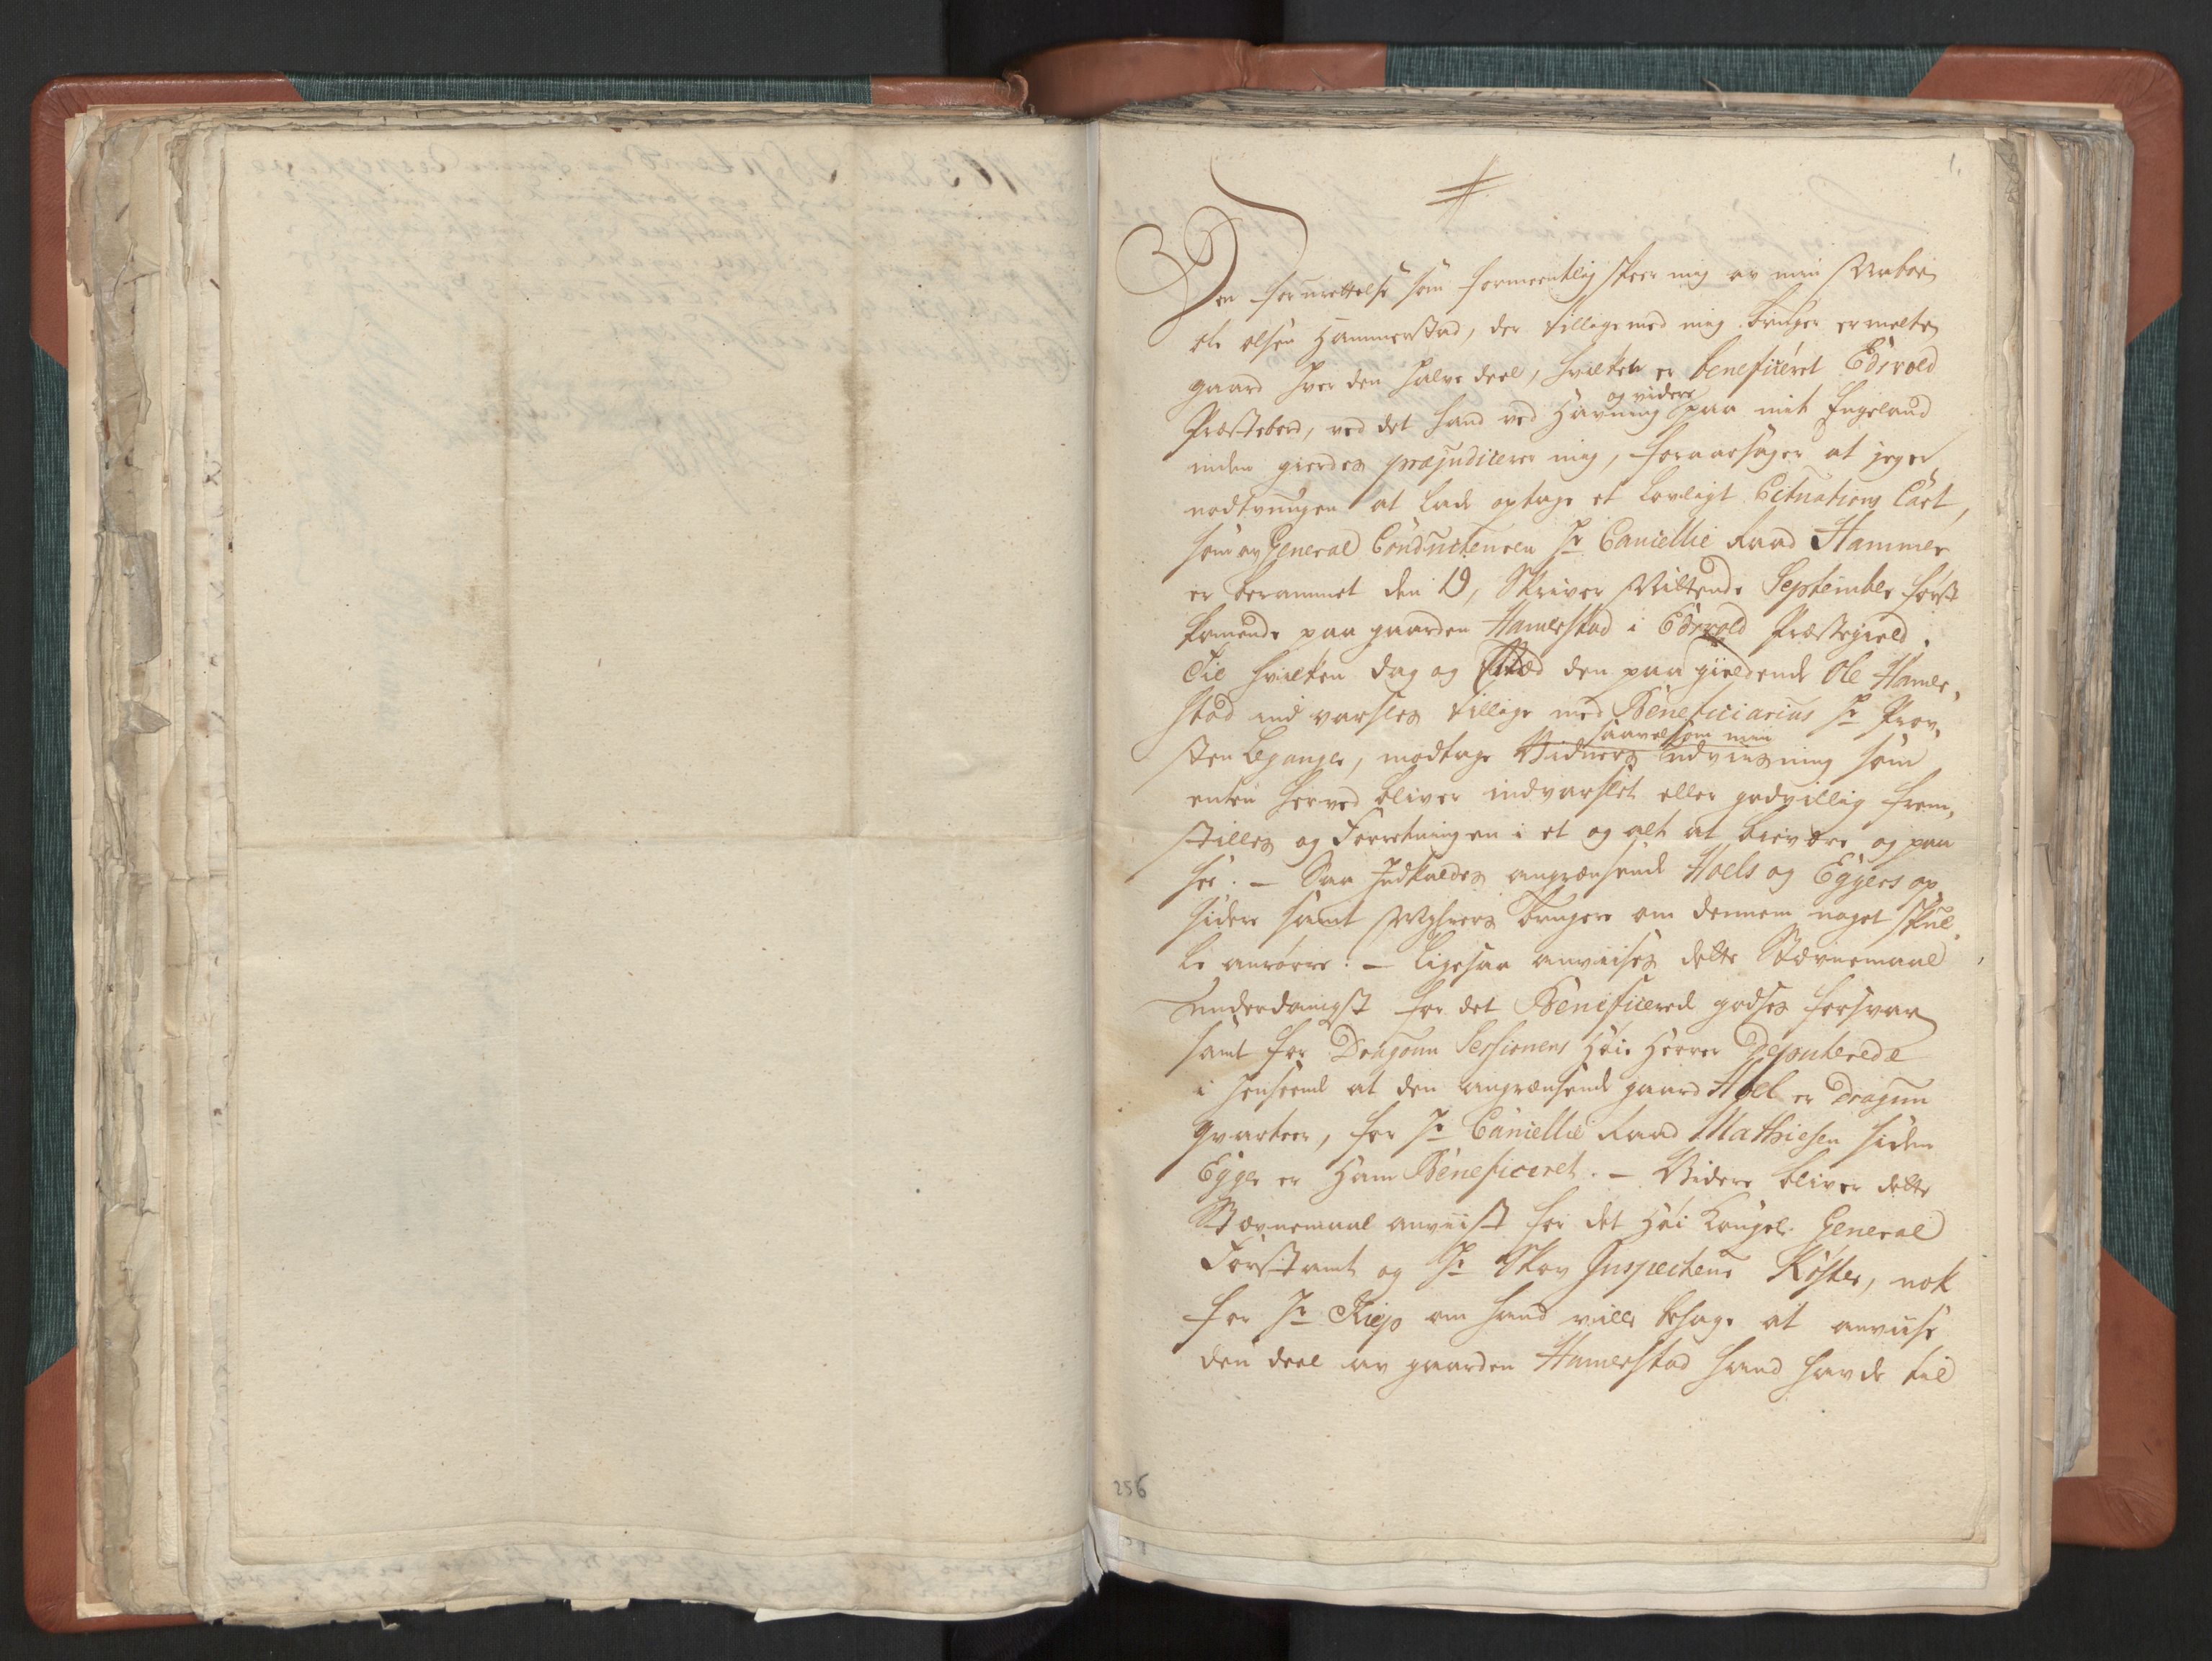 1.
Den fornærmelse som formeentlig skeer mig av min Naboe
ole olsen Hammerstad, der tillige med mig bruger ermelte
gaard hver den halve deel, hvilken er beneficeret Edsvold
og videre
Præstebord, ved det hand ved Havning paa mit Engeland
inden gierdes præjudicerer mig, foraarsager at jeg er
nødtvungen at lade optage et lovligt Cituations Cart,
som av General Conducteuren Hr Cancellie Raad Hammer
er berammet den 19, Skriver Nittende September først
komende paa gaarden Hamerstad i Edsvold Præstegield.
Til hvilken dag og Stæd den paa gieldende Ole Hamer,
stad ind varsles tillige med Beneficiarius Hr Prov,
saavelsom min
sten Leganger, modtage Vidners udviisning som
enten herved bliver indvarslet eller godvillig frem,
stilles og Forretningen i et og alt at bievære og paa
see. – Saa Indkaldes angrænsende Hoels og Eggers op
sidere samt Myhrers brugere om dennem noget skul,
le anrørre. – Ligesaa anviises dette Stævnemaal
underdanigst for det Beneficerede godses forsvar
samt for Dragoun Sessionens Høie Herrer Deputerede
i henseende at den angrænsende gaard Hoel er Dragun
qvarteer, for Hr Cancellie Raad Mathiesen siden
Egge er Ham Beneficeret. – Videre bliver dette
Stævnemaal anviist for det Høi Kongel. General
Forstamt og Hr Skov Inspecteur Köster, nok
for Hr Kiep om hand ville behage at anviise
den deel av gaarden Hamerstad hand havde til
256